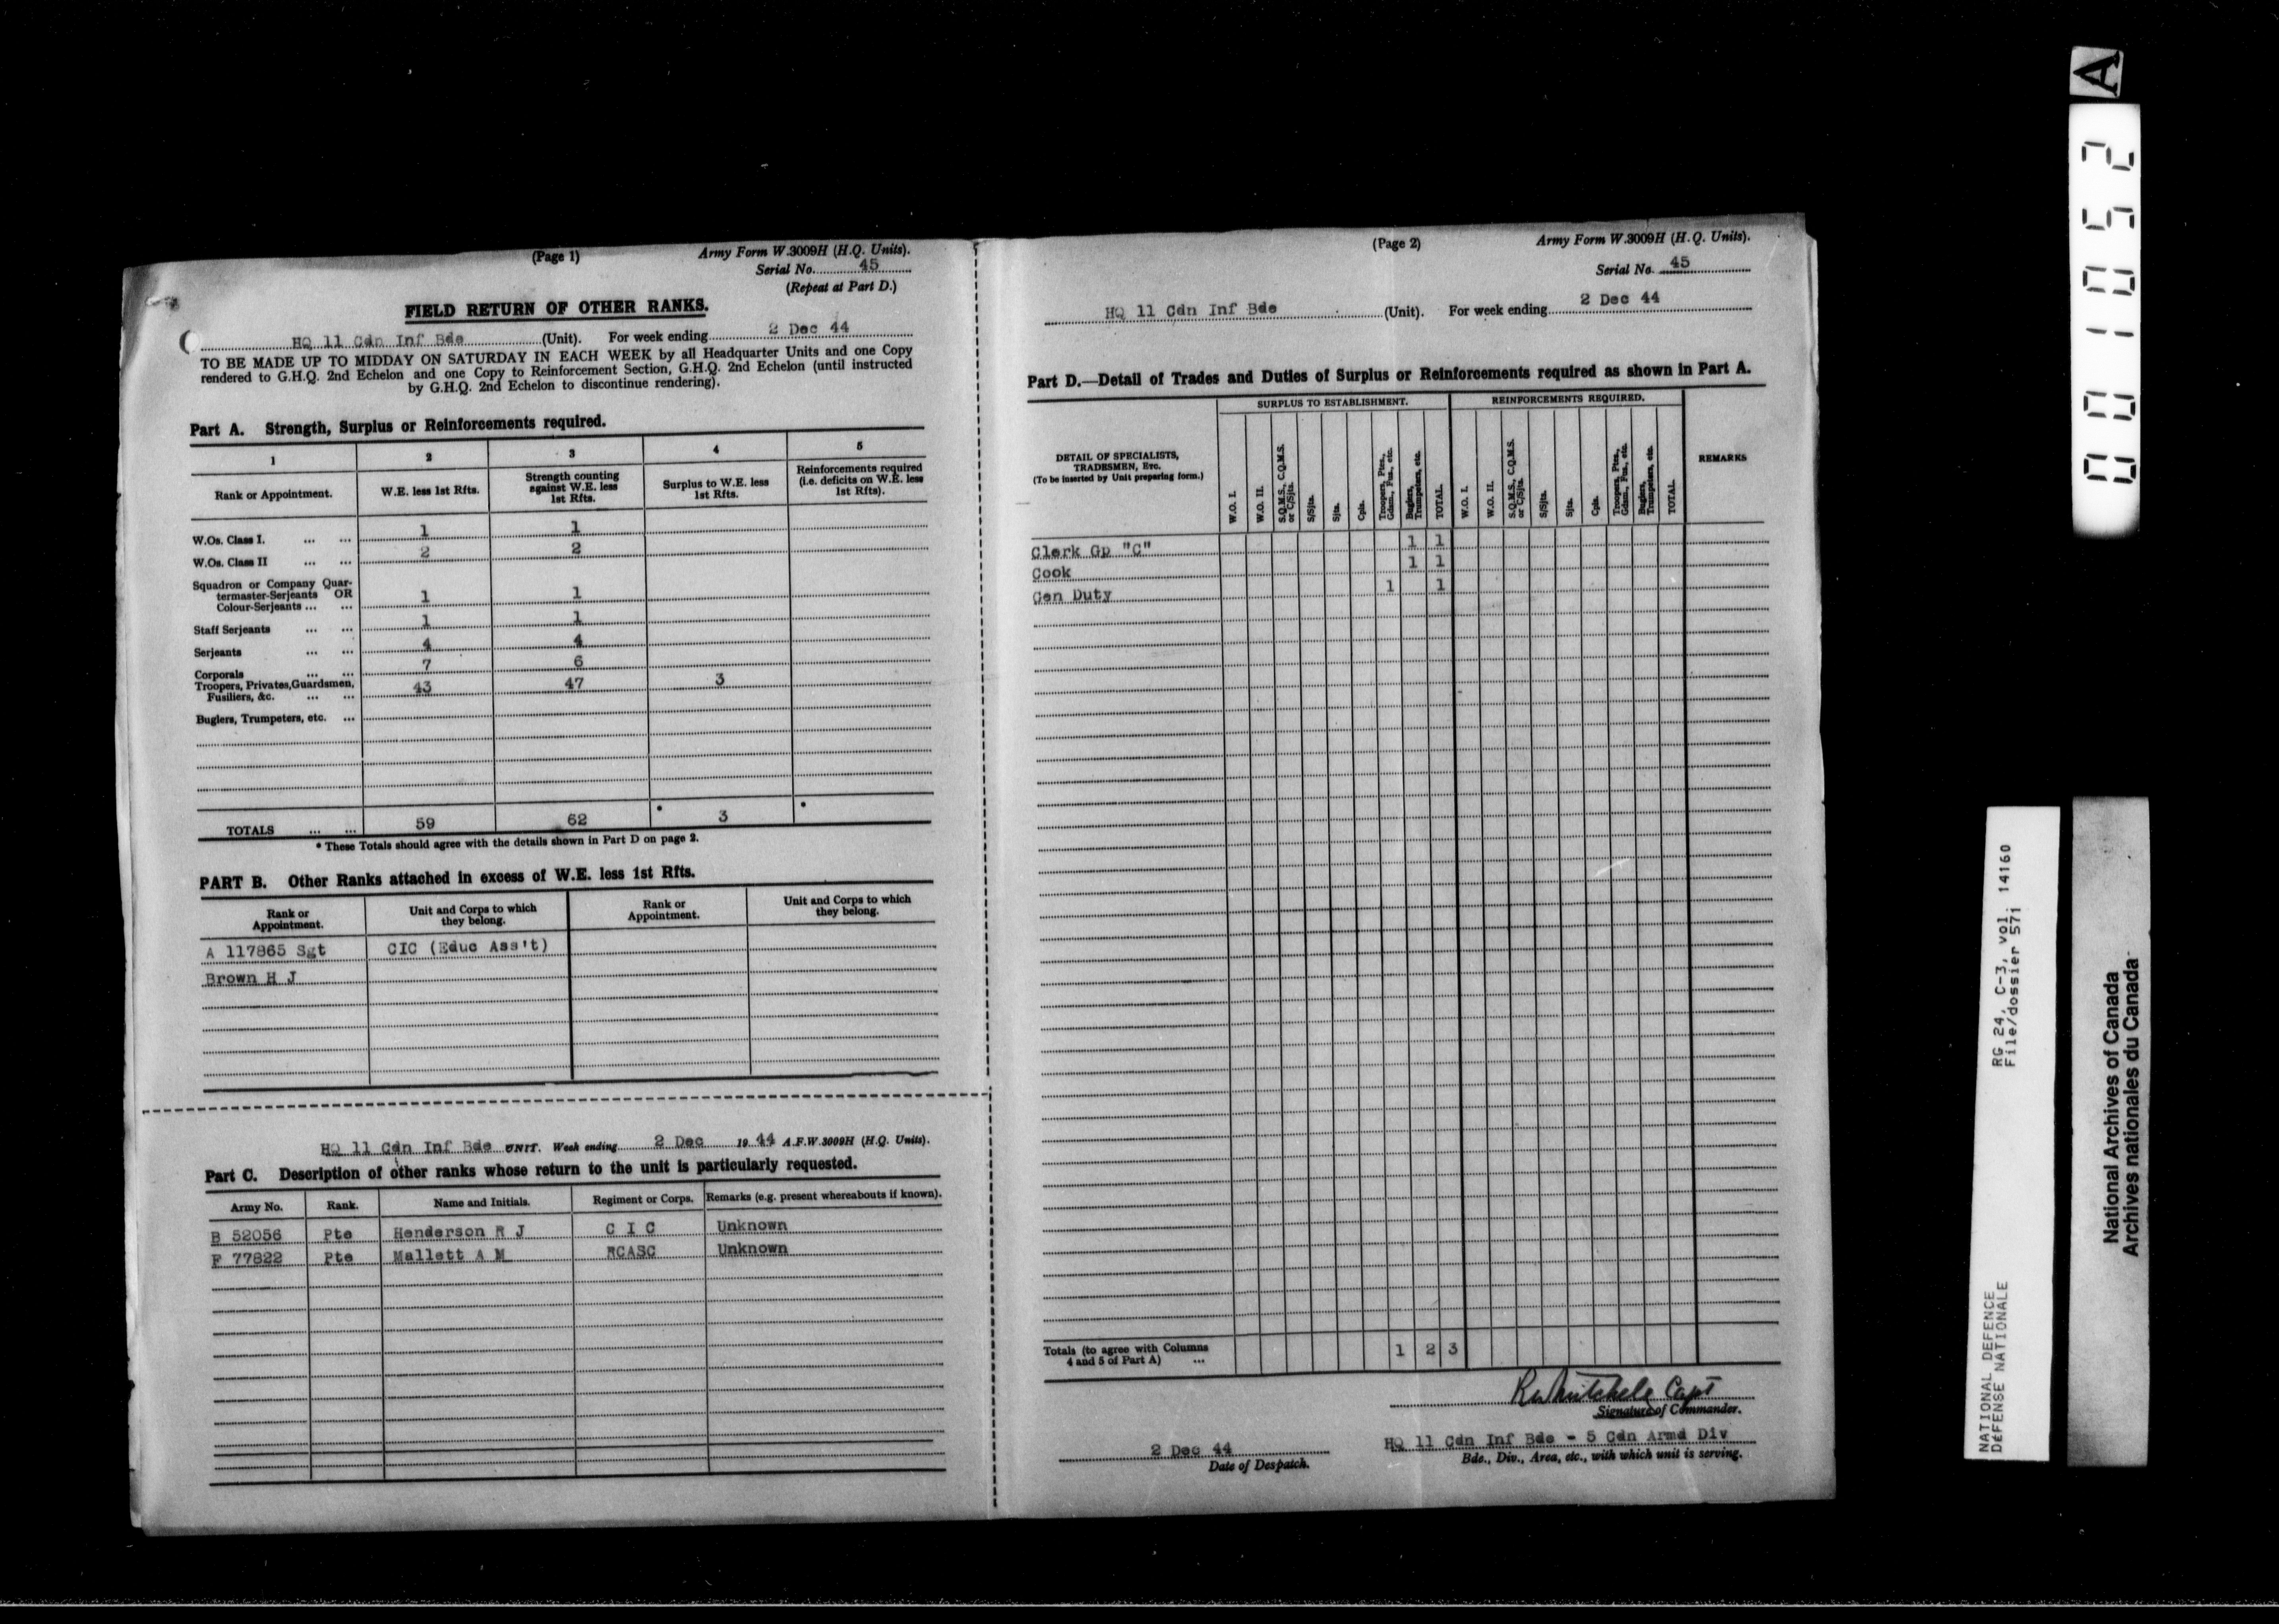 (Page 1)
Army Form W.3009H (H.Q. Units).
Serial No. 45
(Repeat at Part D.)
FIELD RETURN OF OTHER RANKS.
HQ 11 Cdn Inf Bde (Unit). For week ending 2 Dec 44
TO BE MADE UP TO MIDDAY ON SATURDAY IN EACH WEEK by all Headquarter Units and one Copy
rendered to G.H.Q. 2nd Echelon and one Copy to Reinforcement Section, G.H.Q. 2nd Echelon (until instructed
by G.H.Q. 2nd Echelon to discontinue rendering).
Part A. Strength, Surplus or Reinforcements required.
1 2 3 4 5
Rank or Appointment. W.E. less 1st Rfts. Strength counting against W.E. less 1st Rfts. Surplus to W.E. less 1st Rfts. Reinforcements required (i.e. deficits on W.E. less 1st Rfts).
W.Os. Class I. ... ... 1 1
W.Os. Class II ... ... 2 2
Squadron or Company Quar-
termaster-Serjeants OR
Colour-Serjeants ... ... 1 1
Staff Serjeants ... ... 1 1
Serjeants ... ... 4 4
Corporals ... ... 7 6
Troopers, Privates, Guardsmen,
Fusiliers, &c. ... ... 43 47 3
Buglers, Trumpeters, etc. ...
TOTALS ... ... 59 62 * 3 *
* These Totals should agree with the details shown in Part D on page 2.
PART B. Other Ranks attached in excess of W.E. less 1st Rfts.
Rank or Appointment. Unit and Corps to which they belong. Rank or Appointment. Unit and Corps to which they belong.
A 117865 Sgt CIC (Educ Ass't)
Brown H J
HQ 11 Cdn Inf Bde UNIT. Week ending 2 Dec 19 44 A.F.W.3009H (H.Q. Units).
Part C. Description of other ranks whose return to the unit is particularly requested.
Army No. Rank. Name and Initials. Regiment or Corps. Remarks (e.g. present whereabouts if known).
B 52056 Pte Henderson R J C I C Unknown
F 77822 Pte Mallett A M RCASC Unknown
(Page 2)
Army Form W.3009H (H.Q. Units).
Serial No. 45
HQ 11 Cdn Inf Bde (Unit). For week ending 2 Dec 44
Part D.—Detail of Trades and Duties of Surplus or Reinforcements required as shown in Part A.
SURPLUS TO ESTABLISHMENT. REINFORCEMENTS REQUIRED.
DETAIL OF SPECIALISTS,
TRADESMEN, ETC.
(To be inserted by Unit preparing form.)
W.O. I. W.O. II. S.Q.M.S., C.Q.M.S. or C/Sjts. S/Sjts. Sjts. Cpls. Troopers, Ptes., Gdsm., Fus., etc. Buglers, Trumpeters, etc. TOTAL. W.O. I. W.O. II. S.Q.M.S., C.Q.M.S. or C/Sjts. S/Sjts. Sjts. Cpls. Troopers, Ptes., Gdsm., Fus., etc. Buglers, Trumpeters, etc. TOTAL. REMARKS
Clerk Gp "C" 1 1
Cook 1 1
Gen Duty 1 1
Totals (to agree with Columns
4 and 5 of Part A) ... 1 2 3
R W Mitchell Capt
Signature of Commander.
2 Dec 44
Date of Despatch.
HQ 11 Cdn Inf Bde - 5 Cdn Armd Div
Bde., Div., Area, etc., with which unit is serving.
A
0011052
RG 24, C-3, vol. 14160
File/dossier 571
NATIONAL DEFENCE
DÉFENSE NATIONALE
National Archives of Canada
Archives nationales du Canada